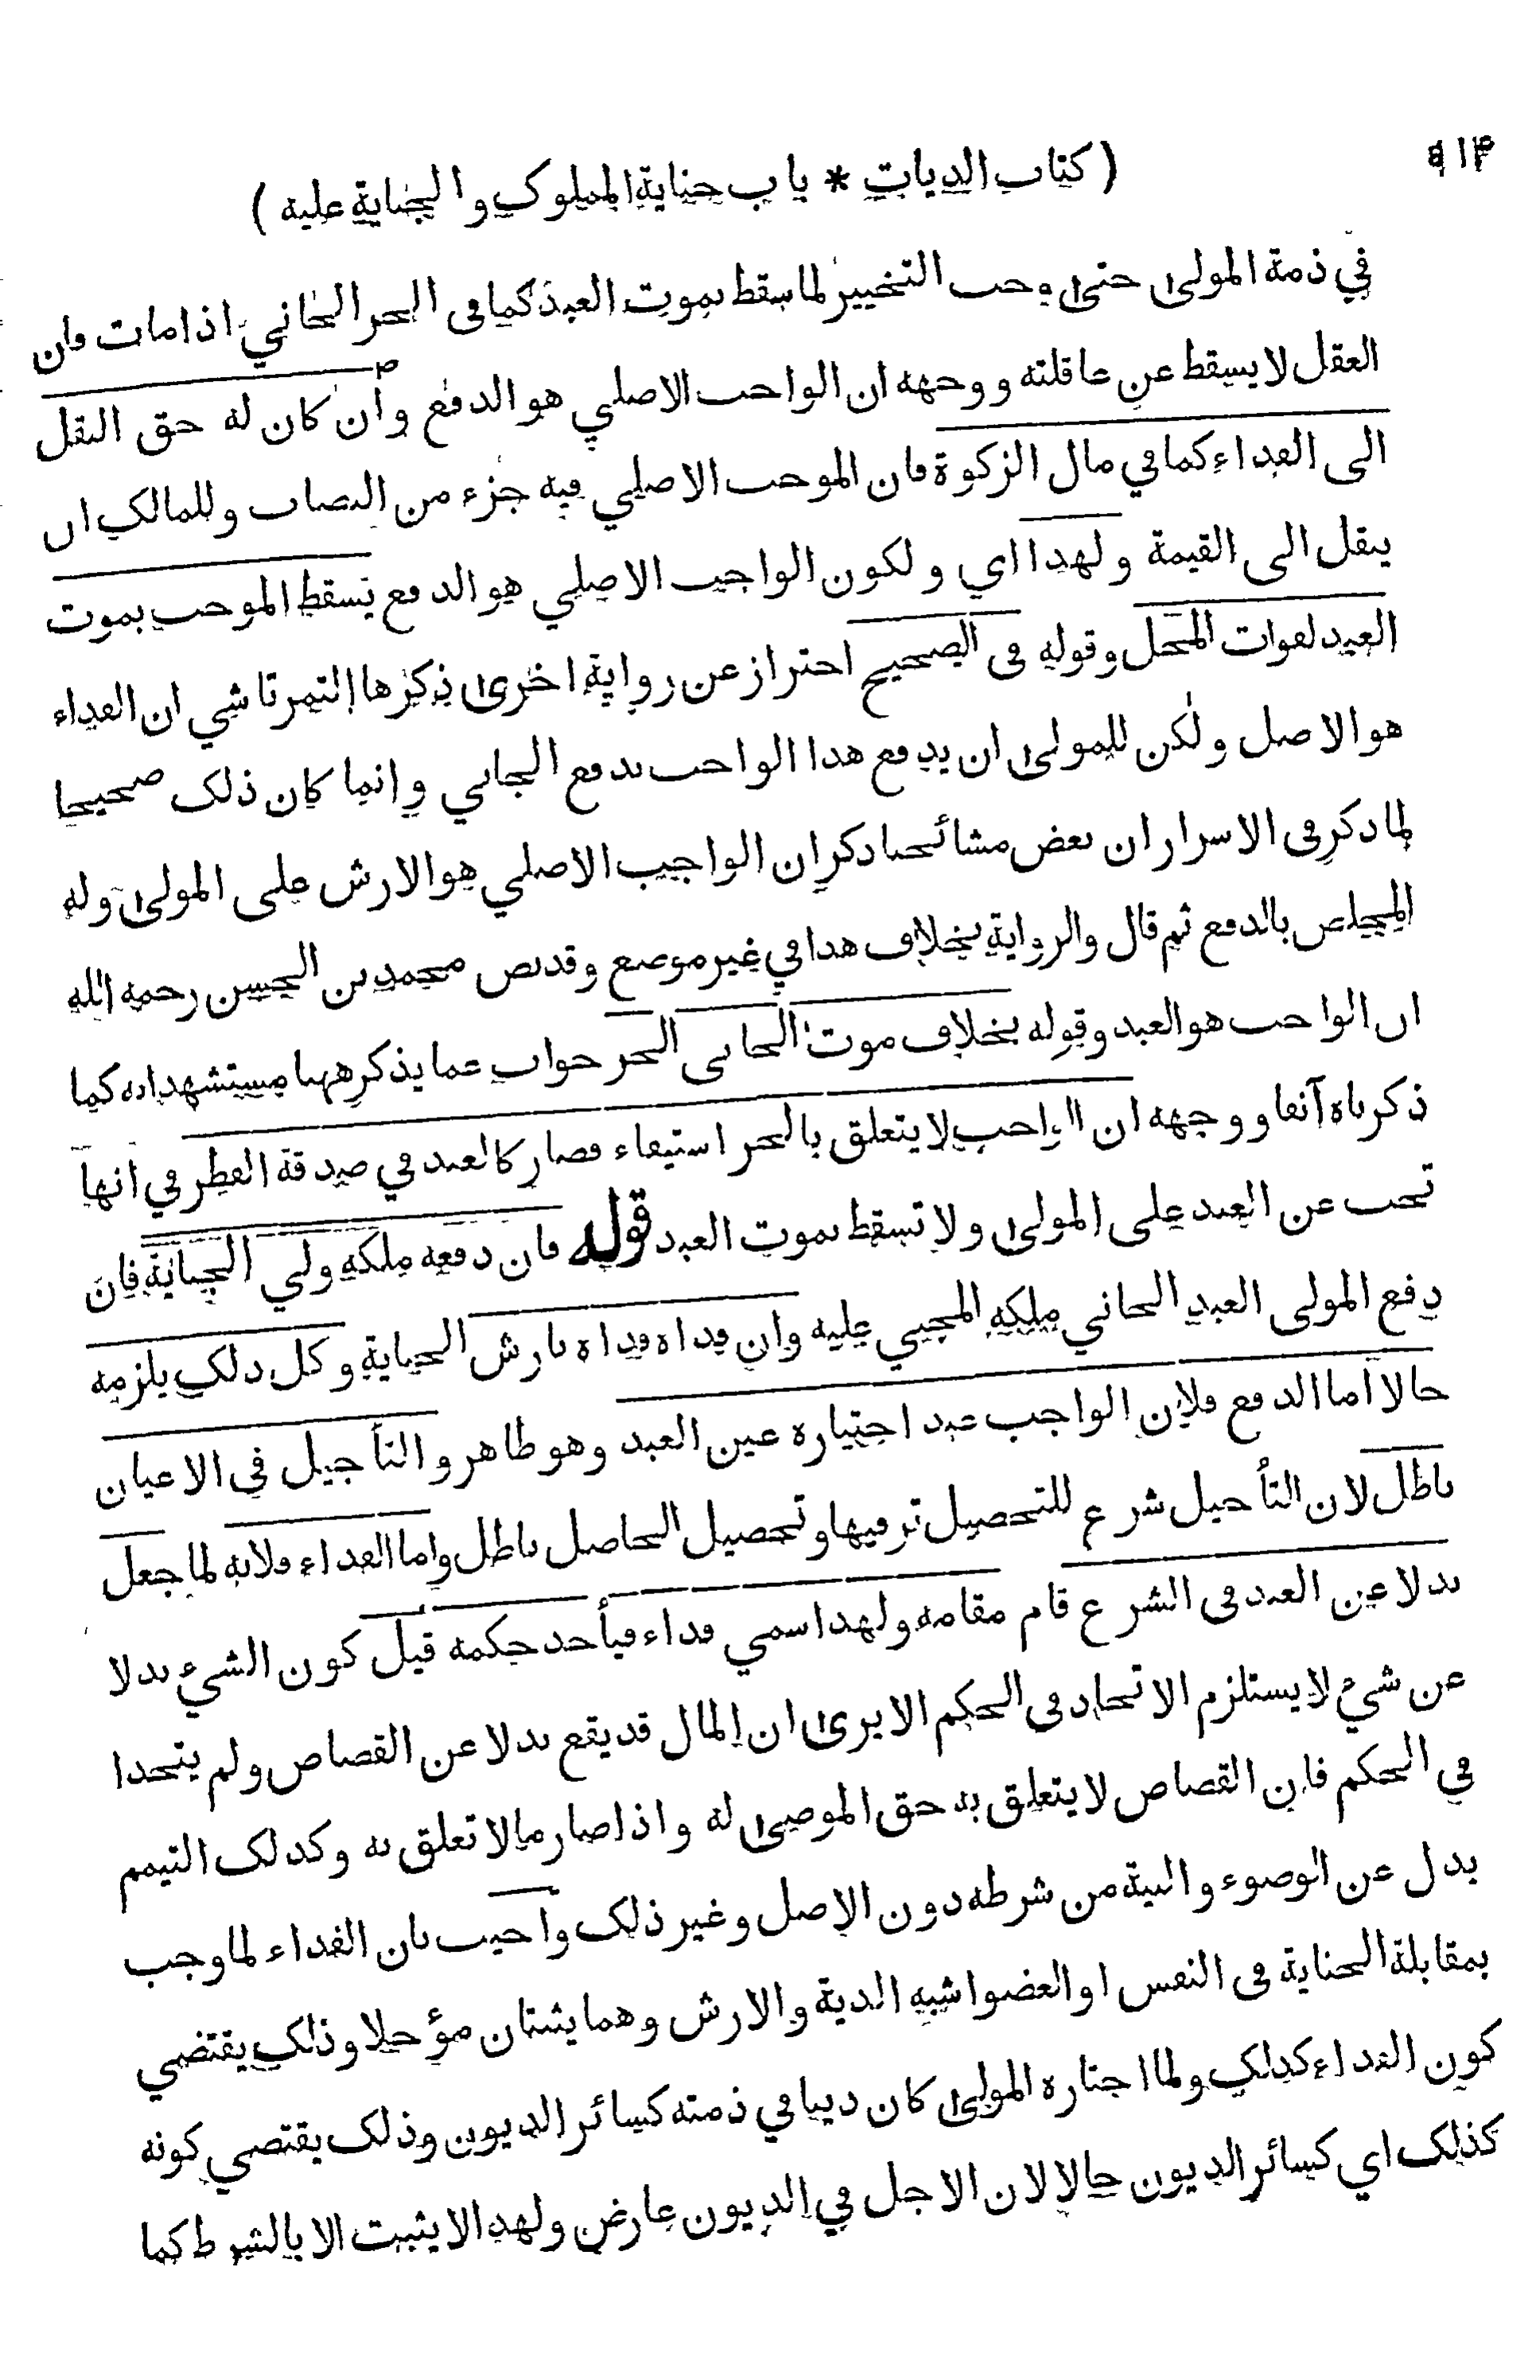 ۵۱۴
( كتاب الديات * باب جناية المملوك والجناية عليه )
في ذمة المولى حتى وجب التخيير لما سقط بموت العبد كما في الحر الجاني اذا مات فان
العقل لا يسقط عن عاقلته ووجهه ان الواجب الاصلي هو الدفع وان كان له حق النقل
الى الفداء كما في مال الزكوة فان الموجب الاصلي فيه جزء من النصاب وللمالك ان
ينقل الى القيمة ولهذا اي ولكون الواجب الاصلي هو الدفع يسقط الموجب بموت
العبد لفوات المحل وقوله في الصحيح احتراز عن رواية اخرى ذكرها التمرتاشي ان الفداء
هو الاصل ولكن للمولى ان يدفع هذا الواجب بدفع الجاني وانما كان ذلك صحيحا
لما ذكر في الاسرار ان بعض مشائخنا ذكر ان الواجب الاصلي هو الارش على المولى وله
المخلص بالدفع ثم قال والرواية بخلاف هذا في غير موضع وقد نص محمد بن الحسن رحمه الله
ان الواجب هو العبد وقوله بخلاف موت الجاني الحر جواب عما يذكر ههنا مستشهدا به كما
ذكرناه آنفا ووجهه ان الواجب لا يتعلق بالحر استيفاء فصار كالعبد في صدقة الفطر في انها
تجب عن العبد على المولى ولا تسقط بموت العبد قوله فان دفعه ملكه ولي الجناية فان
دفع المولى العبد الجاني ملكه المجني عليه وان فداه فداه بارش الجناية وكل ذلك يلزمه
حالا اما الدفع فلان الواجب عند اختياره عين العبد وهو ظاهر والتأجيل في الاعيان
باطل لان التأجيل شرع للتحصيل ترفيها وتحصيل الحاصل باطل واما الفداء فلانه لما جعل
بدلا عن العبد في الشرع قام مقامه ولهذا سمي فداء فيأخذ حكمه قيل كون الشيء بدلا
عن شيء لا يستلزم الاتحاد في الحكم الا يرى ان المال قد يقع بدلا عن القصاص ولم يتحدا
في الحكم فان القصاص لا يتعلق به حق الموصى له واذا صار مالا تعلق به وكذلك التيمم
بدل عن الوضوء والنية من شرطه دون الاصل وغير ذلك واجيب بان الفداء لما وجب
بمقابلة الجناية في النفس او العضو اشبه الدية والارش وهما يثبتان مؤجلا وذلك يقتضي
كون الفداء كذلك ولما اختاره المولى كان دينا في ذمته كسائر الديون وذلك يقتضي كونه
كذلك اي كسائر الديون حالا لان الاجل في الديون عارض ولهذا لا يثبت الا بالشرط كما